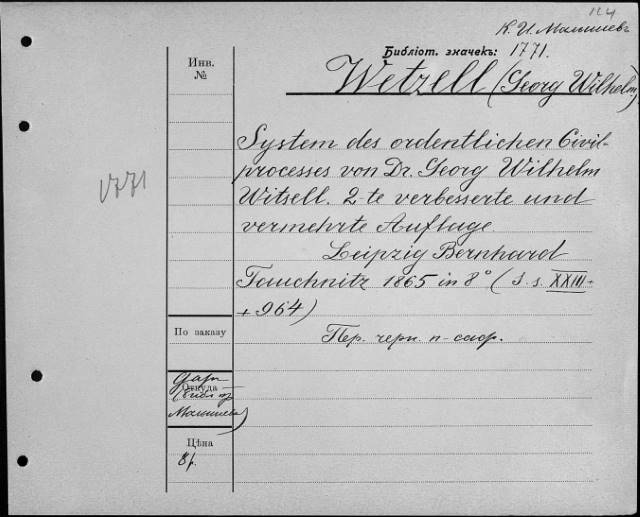 124
К. И. Малышевъ
Библіот. значекъ: 1771.
Wetzell (Georg Wilhelm)
Инв.
№
1771
System des ordentlichen Civil-
processes von Dr. Georg Wilhelm
Witsell. 2-te verbesserte und
vermehrte Auflage.
Leipzig Bernhard
Tauchnitz 1865 in 8° (S. s. XXIII +
+ 964)
По заказу
Пер. черн. п-саф.
Откуда
Даръ
Малышева)
Цѣна
8 р.